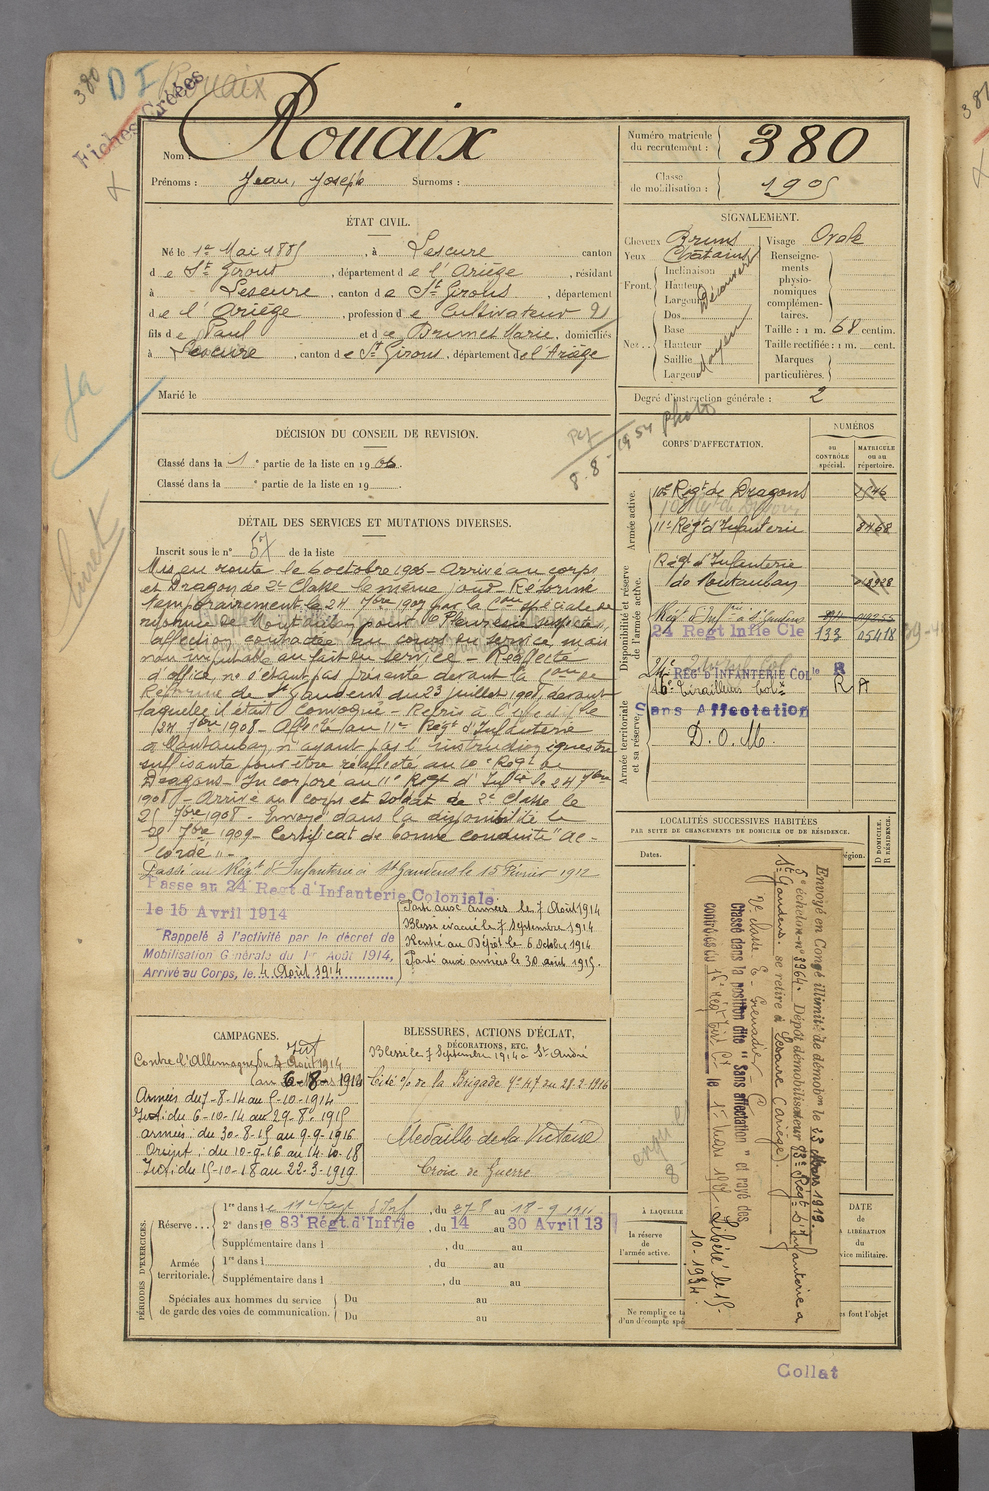 380 D I Rouaix
Fiches Créées
Nom : Rouaix
Prénoms : Jean, Joseph Surnoms :
Numéro matricule du recrutement : 380
Classe de mobilisation : 1905
ÉTAT CIVIL.
Né le 1er Mai 1885, à Lescure canton
de St Girons, département de l'Ariège, résidant
à Lescure, canton de St Girons, département
de l'Ariège, profession de Cultivateur
fils de Paul et de Brunet Marie, domiciliés
à Lescure, canton de St Girons, département de l'Ariège
Marié le
SIGNALEMENT.
Cheveux Bruns
Yeux Châtains
Front. Inclinaison
Hauteur
Largeur Découvert
Nez. Dos
Base
Hauteur
Saillie Moyen
Largeur
Visage Ovale
Renseignements physionomiques complémentaires.
Taille : 1 m. 68 centim.
Taille rectifiée : 1 m. cent.
Marques particulières.
Degré d'instruction générale : 2
DÉCISION DU CONSEIL DE REVISION.
Classé dans la 1e partie de la liste en 1906.
Classé dans la e partie de la liste en 19
8-8-1954 photo
livret
DÉTAIL DES SERVICES ET MUTATIONS DIVERSES.
Inscrit sous le n° 57 de la liste
Mis en route le 6 octobre 1906 - Arrivé au corps
et Dragon de 2e Classe le même jour - Réformé
temporairement le 24 7bre 1907 par la Con spéciale de
réforme de Montauban pour "Pleurésie
affection contractée au cours du service, mais
non imputable au fait du service - Réaffecté
d'office, ne s'étant pas présenté devant la Con de
Réforme de St Gaudens du 23 Juillet 1908, devant
laquelle il était convoqué - Repris à l'effectif le
24 7bre 1908 - Affecté au 11e Régt d'Infanterie
à Montauban, n'ayant pas l'instruction équestre
suffisante pour être réaffecté au 10e Régt de
Dragons - Incorporé au 11e Régt d'Infie le 24 7bre
1908 - Arrivé au corps et Soldat de 2e Classe le
25 7bre 1908 - Envoyé dans la disponibilité le
25 7bre 1909 - Certificat de bonne conduite "Ac-
cordé" -
Passé au Régt d'Infanterie à St Gaudens le 15 Février 1912
Passé au 24 Régt d'Infanterie Coloniale
le 15 Avril 1914
Rappelé à l'activité par le décret de
Mobilisation Générale du 1er Août 1914,
Arrivé au Corps, le 4 Août 1914
Parti aux armées le 7 Août 1914
Blessé évacué le 7 Septembre 1914
Rentré au Dépôt le 6 Octobre 1914
Parti aux armées le 30 août 1915.
CORPS D'AFFECTATION.
NUMÉROS
au CONTRÔLE spécial.
MATRICULE ou au répertoire.
Armée active.
10e Régt de Dragons
11e Régt d'Infanterie 8468
Disponibilité et réserve de l'armée active.
Régt d'Infanterie
de Montauban
Régt d'Infrie à St Gaudens
24 Regt Infie Cle 133 05418
24e RÉGt D'INFANTERIE COLle R
Armée territoriale et sa réserve.
16e Tirailleurs Colx R A
Sans Affectation
D. O. M.
LOCALITÉS SUCCESSIVES HABITÉES
PAR SUITE DE CHANGEMENTS DE DOMICILE OU DE RÉSIDENCE.
Dates.
région.
D DOMICILE. R RÉSIDENCE.
Envoyé en Congé illimité de démobon le 23 Mars 1919.
5e échelon n° 3964. Dépôt démobilisateur 83e Régt d'Infanterie à
St Gaudens. se retire à Lescure (Ariège).
Classé dans la position dite "sans affectation" et rayé des
contrôles du 16e Régt Tirs le 1er Mars 1927. Libéré le 15.
10.1934.
CAMPAGNES.
Contre l'Allemagne du 4 Août 1914
au 6-8-1914
Armées du 7-8-14 au 5-10-1914
Int. du 6-10-14 au 29-8-1915
armées : du 30-8-15 au 9-9-1916
Orient : du 10-9-16 au 14-10-18
Int. du 15-10-18 au 22-3-1919
BLESSURES, ACTIONS D'ÉCLAT,
DÉCORATIONS, ETC.
Blessé le 7 Septembre 1914 à St André
Cité o/ de la Brigade No 47 du 28-2-1916
Médaille de la Victoire
Croix de Guerre
PÉRIODES D'EXERCICES.
Réserve... 1re dans le 11e Régt d'Inf, du 27-8 au 18-9-1911
2e dans le 83e Régt d'Infrie, du 14 au 30 Avril 13
Supplémentaire dans l , du au
Armée territoriale. 1re dans l , du au
Supplémentaire dans l , du au
Spéciales aux hommes du service de garde des voies de communication. Du au
Du au
À LAQUELLE
la réserve de l'armée active.
DATE de la LIBÉRATION du service militaire.
Ne remplir ce ta
d'un décompte spé
s font l'objet
Collat